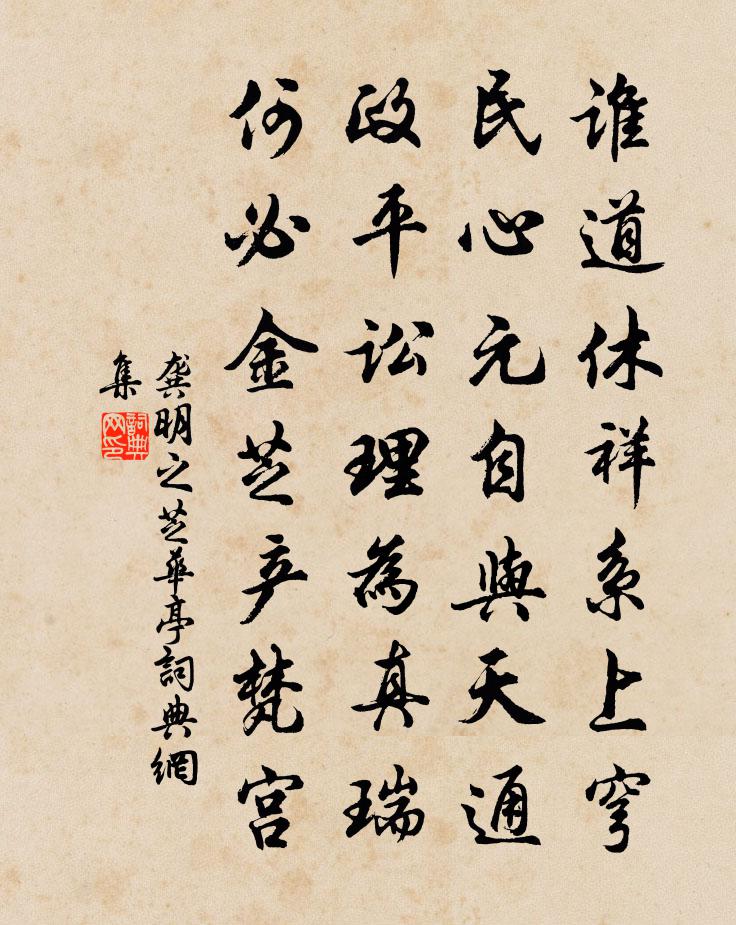 谁道休祥系上穹
民心元自與天通
政平讼理為真瑞
何必金芝产梵宫
龚明之芝華亭詞典網
集
詞典
网印